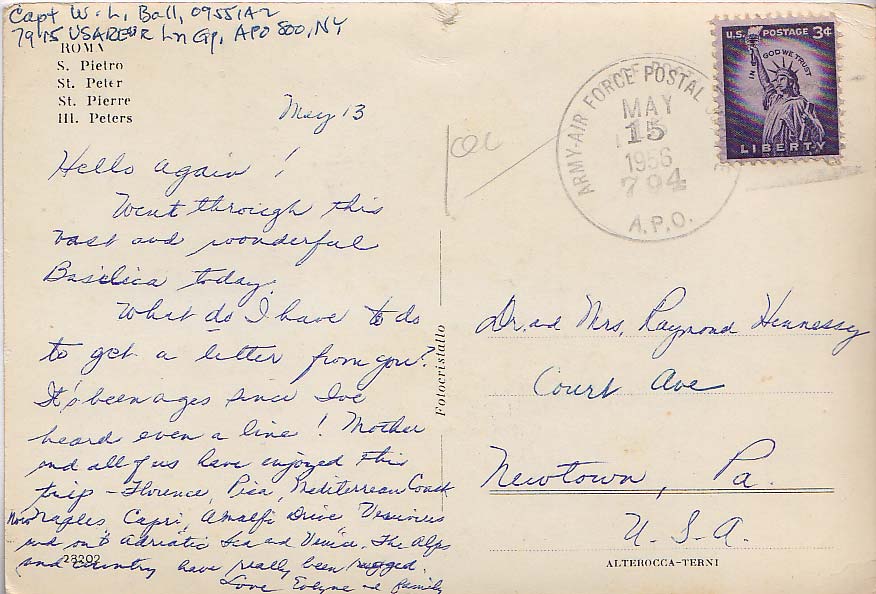 Capt W. L. Ball, 0955142
7915 USAREUR Ln Gp, APO 800, NY
ROMA
S. Pietro
St. Peter
St. Pierre
Hl. Peters
May 13
Hello again!
Went through this
vast and wonderful
Basilica today.
What do I have to do
to get a letter from you?
It's been ages since I've
heard even a line! Mother
and all of us have enjoyed this
trip - Florence, Pisa, Mediterrean Coast
Now Naples, Capri, Amalfi Drive Vesuvius
and on to Adriatic Sea and Venice. The Alps
and country have really been rugged.
Love Evelyne and family
28202
Fotocristallo
ARMY-AIR FORCE POSTAL
MAY
15
1956
794
A.P.O.
U.S. POSTAGE 3¢
IN GOD WE TRUST
LIBERTY
Dr. and Mrs. Raymond Hennessy
Court Ave
Newtown, Pa.
U. S. A.
ALTEROCCA-TERNI